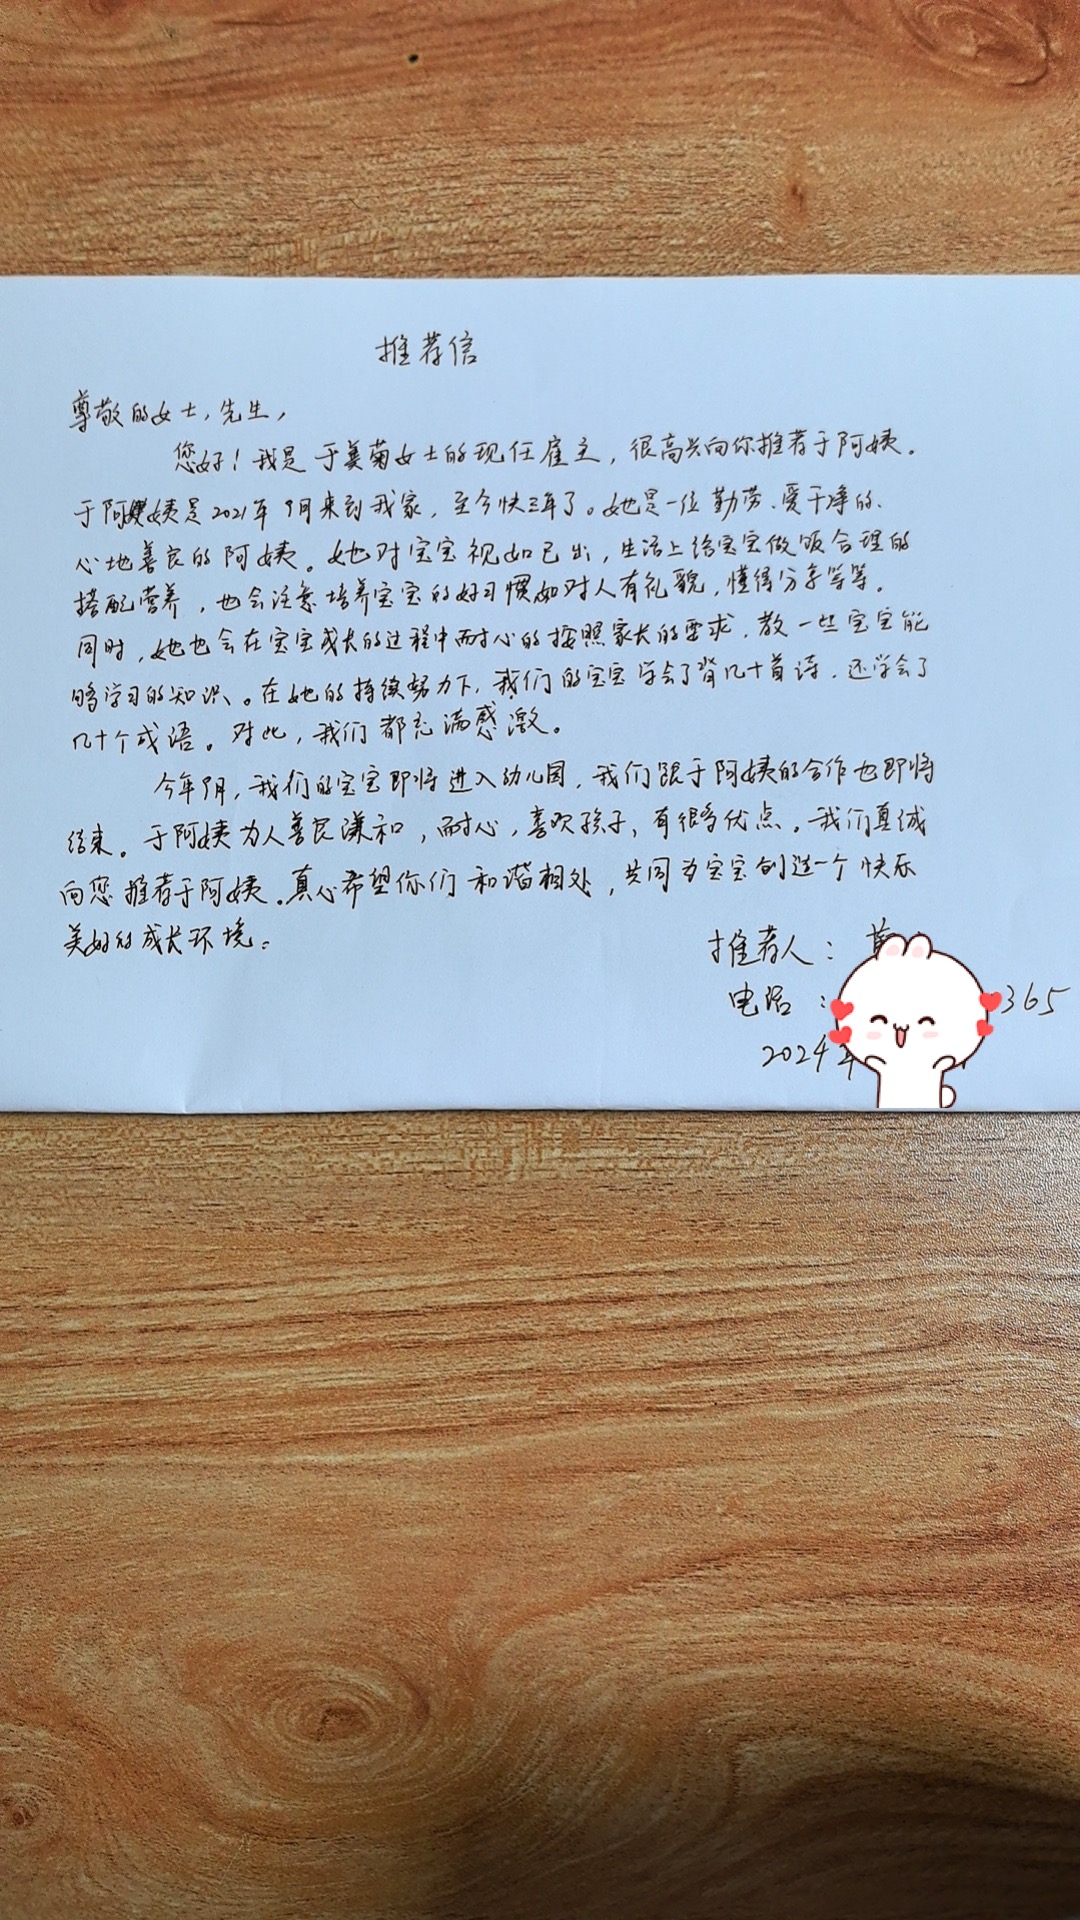 推荐信
尊敬的女士,先生,
您好!我是于美菊女士的现任雇主,很高兴向你推荐于阿姨。
于阿姨是2021年9月来到我家,至今快三年了。她是一位勤劳、爱干净的、
心地善良的阿姨。她对宝宝视如己出,生活上给宝宝做饭合理的
搭配营养,也会注意培养宝宝的好习惯如对人有礼貌,懂得分享等等。
同时,她也会在宝宝成长的过程中耐心的按照家长的要求,教一些宝宝能
够学习的知识。在她的持续努力下,我们的宝宝学会了背几十首诗,还学会了
几十个成语。对此,我们都充满感激。
今年9月,我们的宝宝即将进入幼儿园,我们跟于阿姨的合作也即将
结束。于阿姨为人善良谦和,耐心,喜欢孩子,有很多优点。我们真诚
向您推荐于阿姨。真心希望你们和谐相处,共同为宝宝创造一个快乐
美好的成长环境。
推荐人:
电话:365
2024年